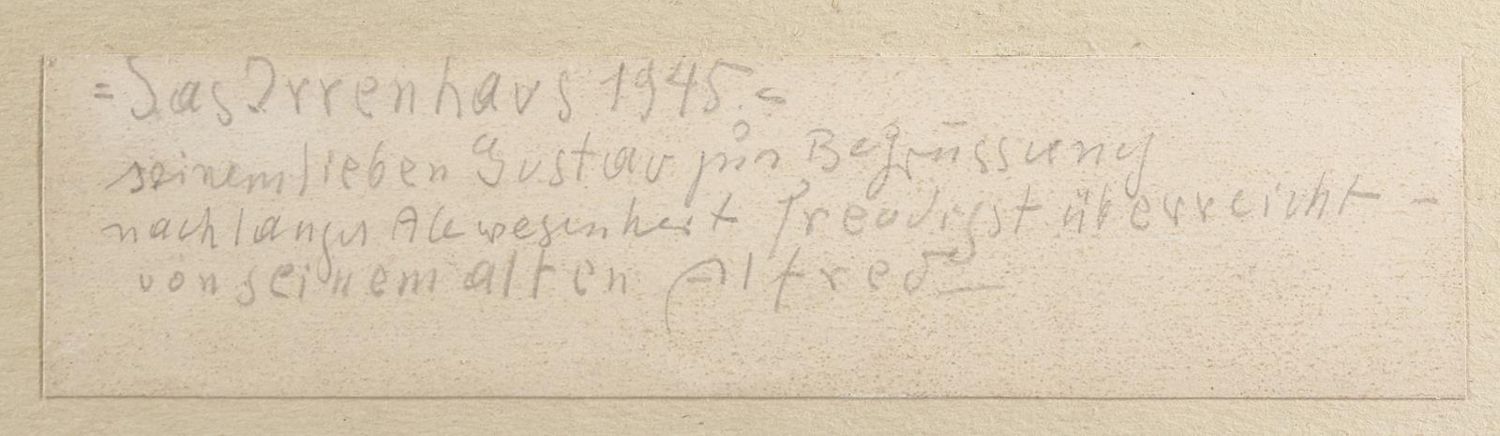 = Das Irrenhaus 1945. =
seinem lieben Gustav zur Begrüssung
nach langer Abwesenheit freudigst überreicht -
von seinem alten Alfred